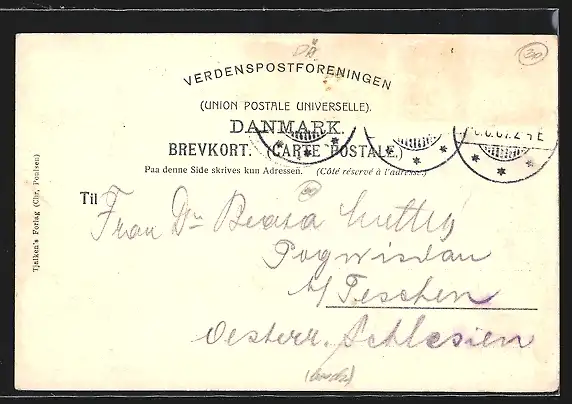 DÄ.
30
VERDENSPOSTFORENINGEN
(UNION POSTALE UNIVERSELLE).
DANMARK.
BREVKORT. (CARTE POSTALE.)
Paa denne Side skrives kun Adressen. (Côté réservé à l'adresse.)
Til
Frau Dr Beata
Pogwisdau
b/ Teschen
Oesterr. Schlesien
Tjalken's Forlag (Chr. Poulsen)